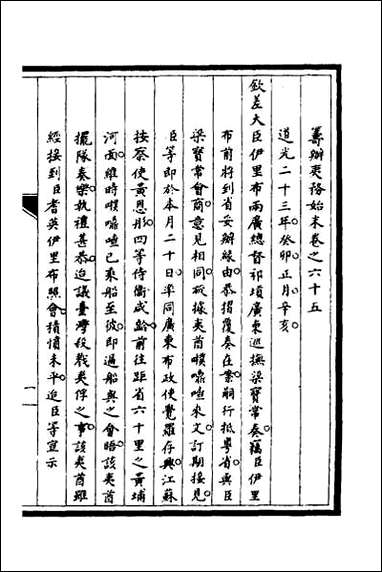 籌辦夷務始末卷之六十五
道光二十三年癸卯正月辛亥
欽差大臣伊里布兩廣總督祁𡎴廣東巡撫梁寶常奏竊臣伊里
布前將到省妥辦緣由恭摺覆奏在案嗣行抵粵省與臣
梁寶常會商意見相同祗據夷酋㗶嚊喳來文訂期接見
臣等即於本月二十日率同廣東布政使覺羅存興江蘇
按察使黃恩彤四等侍衛咸齡前往距省六十里之黃埔
河面維時㗶嚊喳已乘船至彼即過船與之會晤該夷酋
擺隊奏樂執禮甚恭迨議臺灣殺戮夷俘之事該夷酋雖
經接到臣耆英伊里布照會積憤未平迨臣等宣示
一